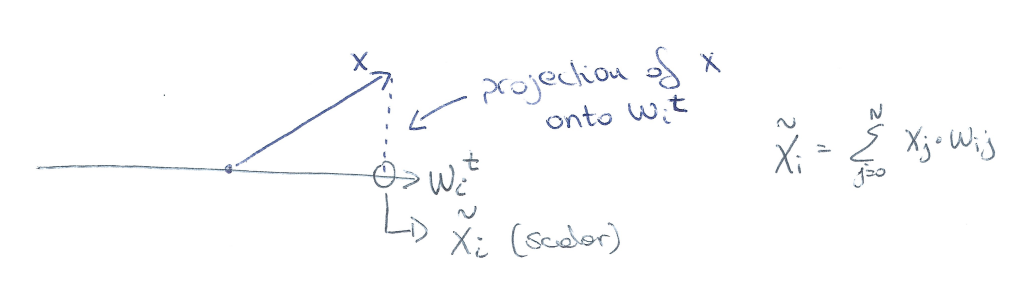 x
projection of x
onto w_i^t
w_i^t
x̃_i (scalar)
x̃_i = Σ_{j=0}^{N} x_j · w_{ij}